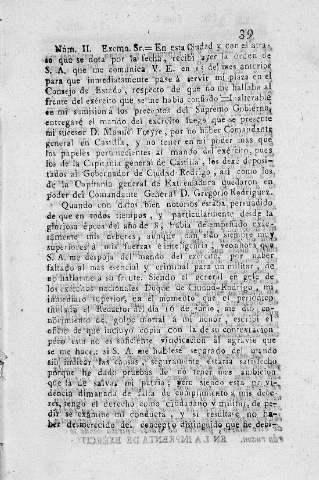 39
Núm. II. Excmo. Sr.= En esta Ciudad y con el atra-
so que se nota por la fecha, recibí ayer la orden de
S. A. que me comunica V. E. en 15 de mes anterior
para que inmediatamente pase á servir mi plaza en el
Consejo de Estado, respecto de que no me hallaba al
frente del exército que se me habia confiado. Inalterable
en mi sumision á los preceptos del Supremo Gobierno,
entregaré el mando del exercito luego que se presente
mi sucesor D. Manuel Freyre, por no haber Comandante
general en Castilla, y no tener en mi poder mas que
los papeles pertenecientes al mando del exército, pues
los de la Capitanía general de Castilla, los dexé deposi-
tados al Gobernador de Ciudad Rodrigo, así como los
de la Capitanía general de Extremadura quedaron en
poder del Comandante General D. Gregorio Rodriguez.
Quando con datos bien notorios estaba persuadido
de que en todos tiempos, y particularmente desde la
gloriosa época del año de 8, habia desempeñado exac-
tamente mis deberes, aunque han sido siempre muy
superiores á mis fuerzas é inteligencia; veo ahora que
S. A. me despoja del mando del exército, por haber
faltado al mas esencial y criminal para un militar, de
no hallarme á su frente. Siendo el general en gefe de
los exércitos nacionales Duque de Ciudad-Rodrigo, mi
inmediato superior, en el momento que el periódico
titulado el Redactor del dia 16 de junio, me dió co-
nocimiento del golpe mortal á mi honor, escribí el
oficio de que incluyo copia con la de su contestacion
pero esta no es suficiente vindicacion al agravio que
se me hace: si S. A. me hubiese separado del mando
sin indicar las causas, seguramente estaria satisfecho
porque he dado pruebas de no tener mas ambicion
que la de salvar mi patria; pero siendo esta provi-
dencia dimanada de falta de cumplimiento á mis debe-
res, tengo el derecho como ciudadano y militar, de pe-
dir se exâmine mi conducta, y si resultase no ha-
ber desmerecido del concepto distinguido que he debi-